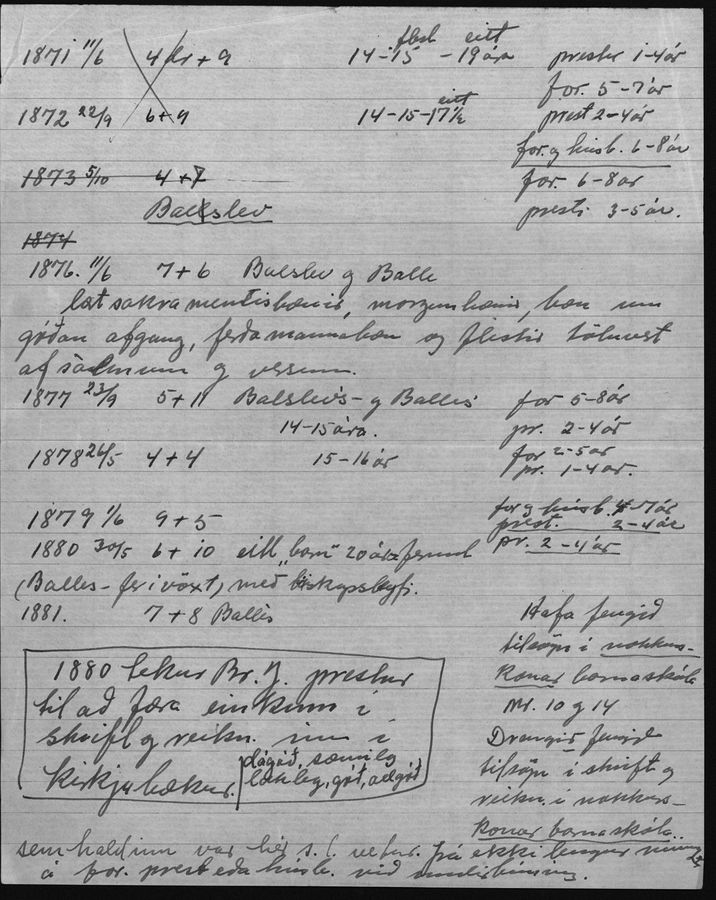 1871 11/6 4 dr + 9 14-15 flest - 19 ára eitt prestur 1-4 ár
for. 5-7 ár
1872 22/9 6+9 14-15-17½ eitt prest 2-4 ár
for. og húsb. 6-8 ár
1873 5/10 4+7 for. 6-8 ár
Balslev prestr 3-5 ár.
1874
1876. 11/6 7+6 Balslev og Balle
lært sakramentisbænir, morgunbænir, bæn um
góðan afgang, ferðamannabæn og flestir töluvert
af sálmum og versum.
1877 23/9 5+11 Balslevs- og Balles for 5-8 ár
14-15 ára. pr. 2-4 ár
1878 26/5 4+4 15-16 ár for 2-5 ár
pr. 1-4 ár.
1879 1/6 9+5 for og húsb. 4-7 ár
prest. 2-4 ár
1880 30/5 6+10 eitt "barn" 20 ára fermt pr. 2-4 ár
(Balles- fer í vöxt) með biskupsleyfi.
1881. 7+8 Balles
1880 tekur Br. J. prestur
til að færa einkunn í
skrift og reikn. inn í
kirkjubækur. dágóð, sæmileg
lakleg, góð, allgóð
Hafa fengið
tilsögn í nokkurs-
konar barnaskóla
nr. 10 og 14
Drengir fengið
tilsögn í skrift og
reikn. í nokkurs-
konar barnaskóla..
sem haldinn var hér s.l. vetur. frá ekki lengur
á for. prest eða húsb. við